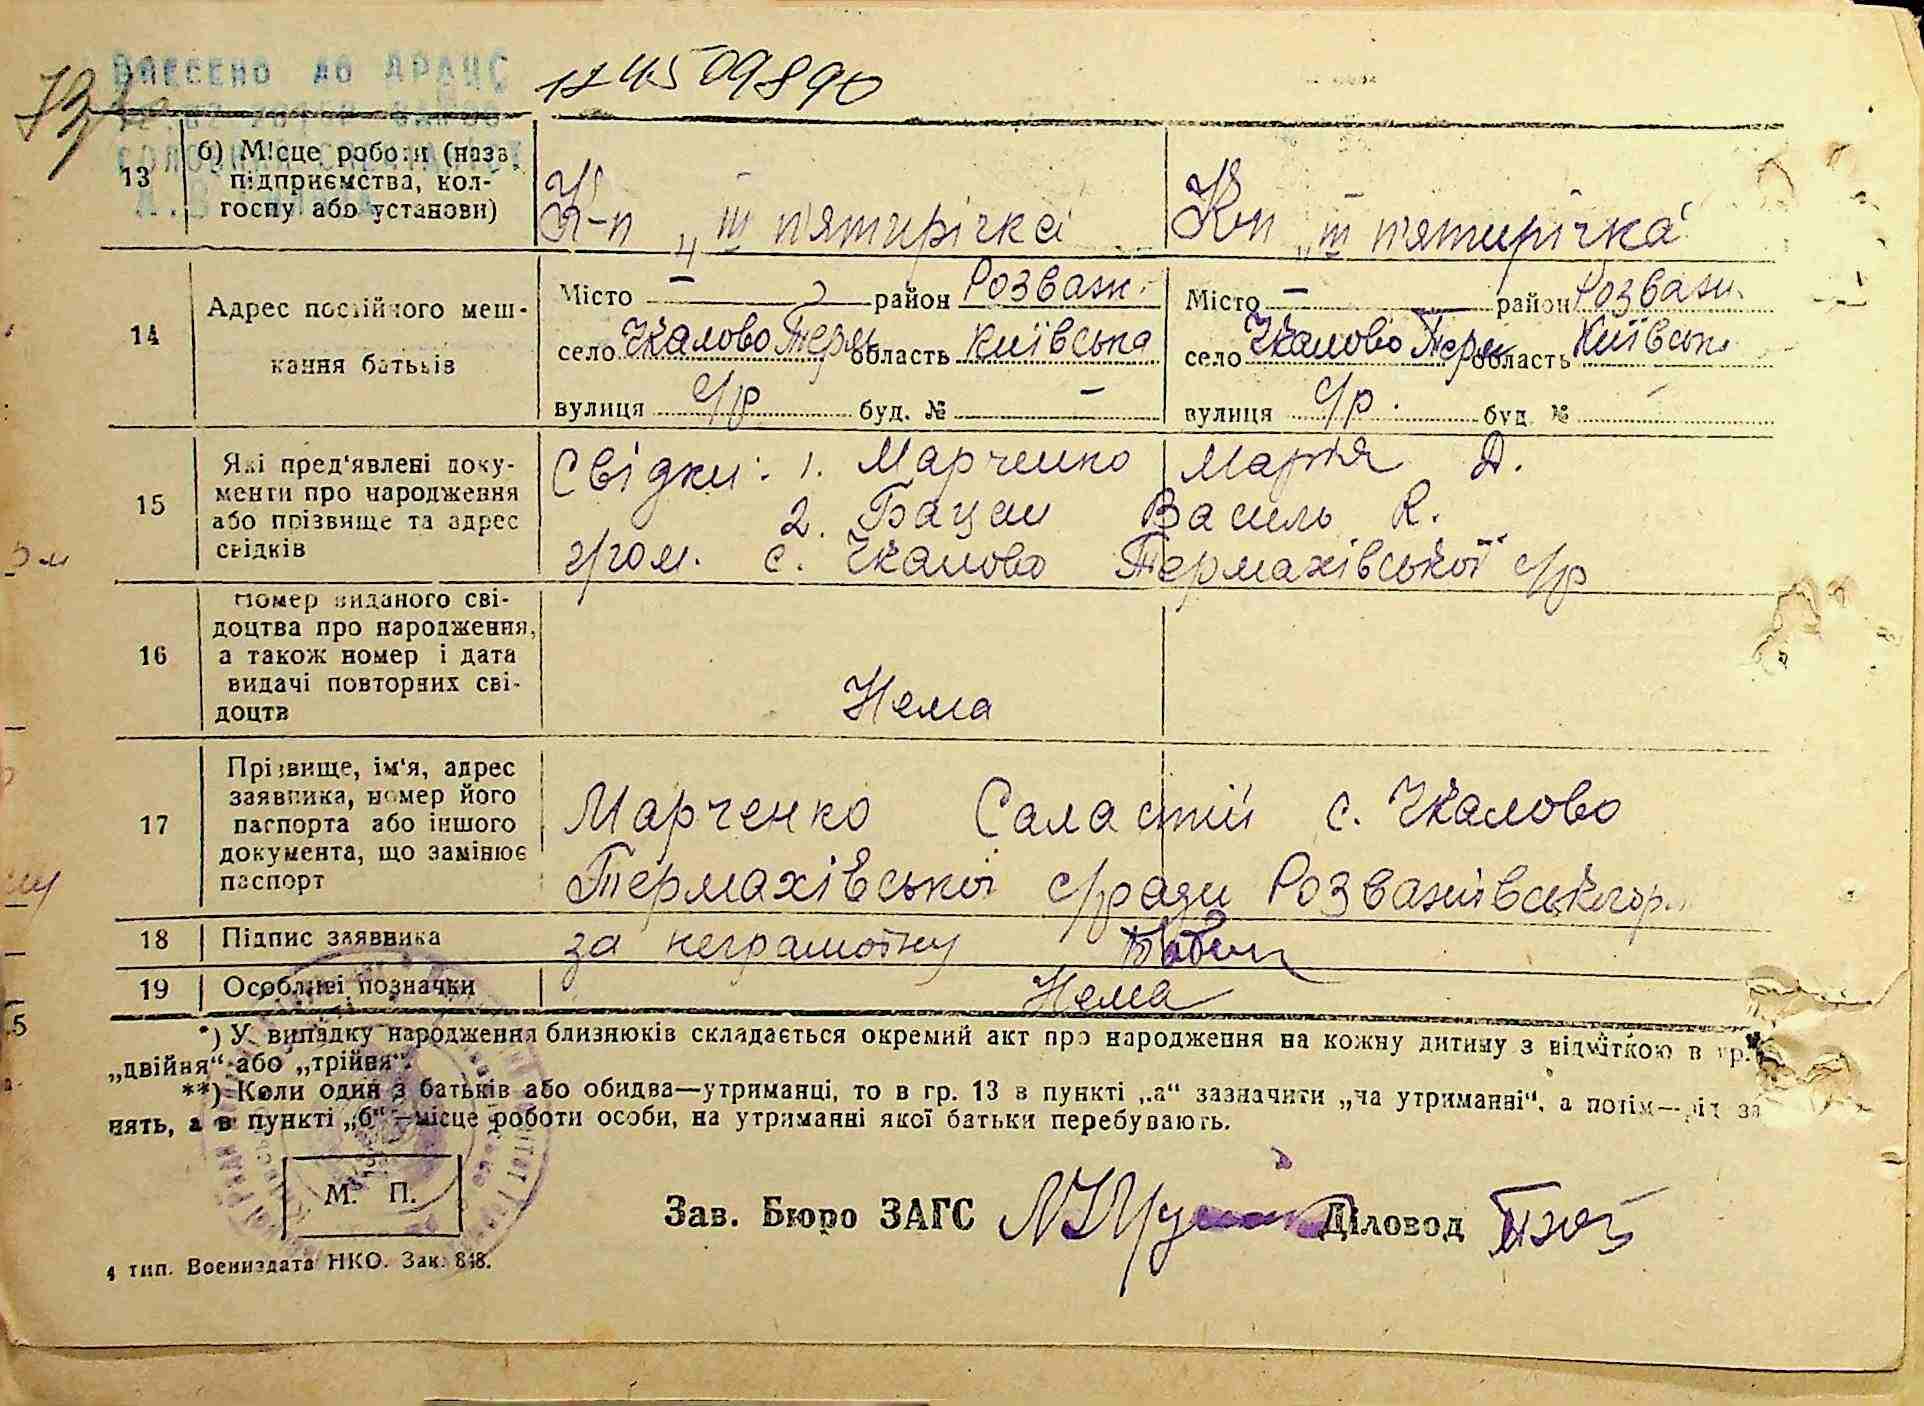 ВНЕСЕНО ДО ДРАЦС
1245 09890
13 б) Місце роботи (назв. підприємства, колгоспу або установи)
К-п „ІІІ п'ятирічка К-п „ІІІ п'ятирічка
14 Адрес постійного мешкання батьків
Місто — район Розваж. Місто — район Розваж.
село Чкалово Терм область Київська село Чкалово Терм область Київськ
вулиця с/р буд. № — вулиця с/р. буд. № —
15 Які пред'явлені документи про народження або прізвище та адрес свідків
Свідки: 1. Марченко Марія Д.
2. Бацан Василь К.
гром. с. Чкалово Термахівської с/р
16 Номер виданого свідоцтва про народження, а також номер і дата видачі повторних свідоцтв
Нема
17 Прізвище, ім'я, адрес заявника, номер його паспорта або іншого документа, що замінює паспорт
Марченко Саластій с. Чкалово
Термахівської с/ради Розважівського р.
18 Підпис заявника за неграмотну
19 Особливі позначки Нема
*) У випадку народження близнюків складається окремий акт про народження на кожну дитину з відміткою в гр.
„двійня“ або „трійня“.
**) Коли один з батьків або обидва—утриманці, то в гр. 13 в пункті „а“ зазначити „на утриманні“, а потім—рід за
нять, а в пункті „б“—місце роботи особи, на утриманні якої батьки перебувають.
М. П.
Зав. Бюро ЗАГС Діловод
4 тип. Воениздата НКО. Зак. 848.